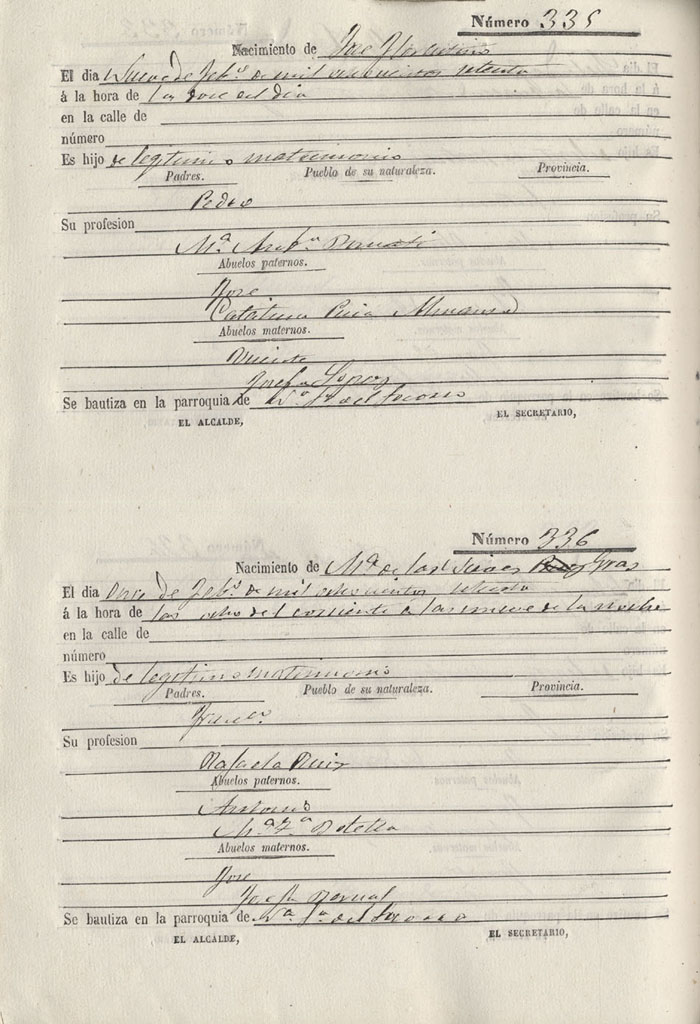 Número 335
Nacimiento de Jose Florentino
El dia Nueve de Feb.º de mil ochocientos setenta
á la hora de las doce del dia
en la calle de
número
Es hijo de legitimo matrimonio
Padres. Pueblo de su naturaleza. Provincia.
Pedro
Su profesion
M.ª Ant.ª
Abuelos paternos.
Jose
Catalina
Abuelos maternos.
Vicente
Josefa Lopez
Se bautiza en la parroquia de N.ª S.ª del Socorro
EL ALCALDE, EL SECRETARIO,
Número 336
Nacimiento de M.ª de las Nieves Gras
El dia Once de Feb.º de mil ochocientos setenta
á la hora de las ocho del corriente a las nueve de la noche
en la calle de
número
Es hijo de legitimo matrimonio
Padres. Pueblo de su naturaleza. Provincia.
Fran.co
Su profesion
Rafaela Ruiz
Abuelos paternos.
Antonio
M.ª T.ª Botella
Abuelos maternos.
Jose
Josefa Bernal
Se bautiza en la parroquia de N.ª S.ª del Socorro
EL ALCALDE, EL SECRETARIO,